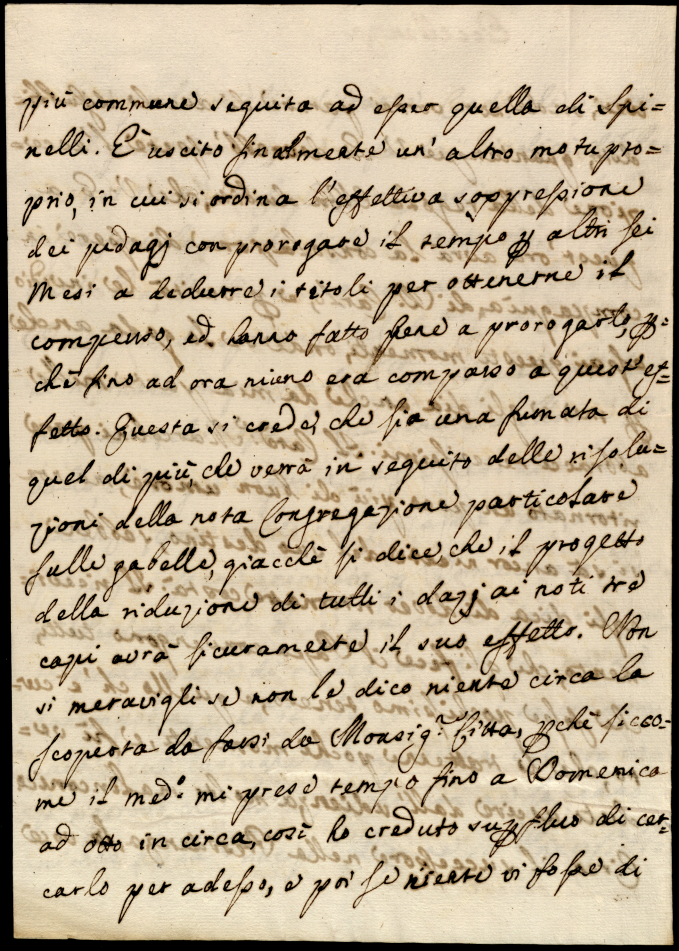 più commune seguita ad esser quella di Spi=
nelli. È uscito finalmente un' altro motupro=
prio, in cui si ordina l'effettiva soppressione
dei pedagj con prorogare il tempo p altri sei
Mesi a dedurre i titoli per ottenerne il
compenso, ed hanno fatto bene a prorogarlo, p=
chè fino ad ora niuno era comparso a quest'ef=
fetto. Questa si crede, che sia una fumata di
quel di più, che verrà in seguito delle risolu=
zioni della nota Congregazione particolare
sulle gabelle, giacchè si dice, che il progetto
della riduzione di tutti i dazj ai noti tre
capi avrà sicuramente il suo effetto. Non
si meravigli se non le dico niente circa la
scoperta da farsi da Monsig.r Citta, pchè sicco=
me il med.o mi prese tempo fino a Domenica
ad otto in circa, così ho creduto supfluo di cer=
carlo per adesso, e poi se niente vi fosse di